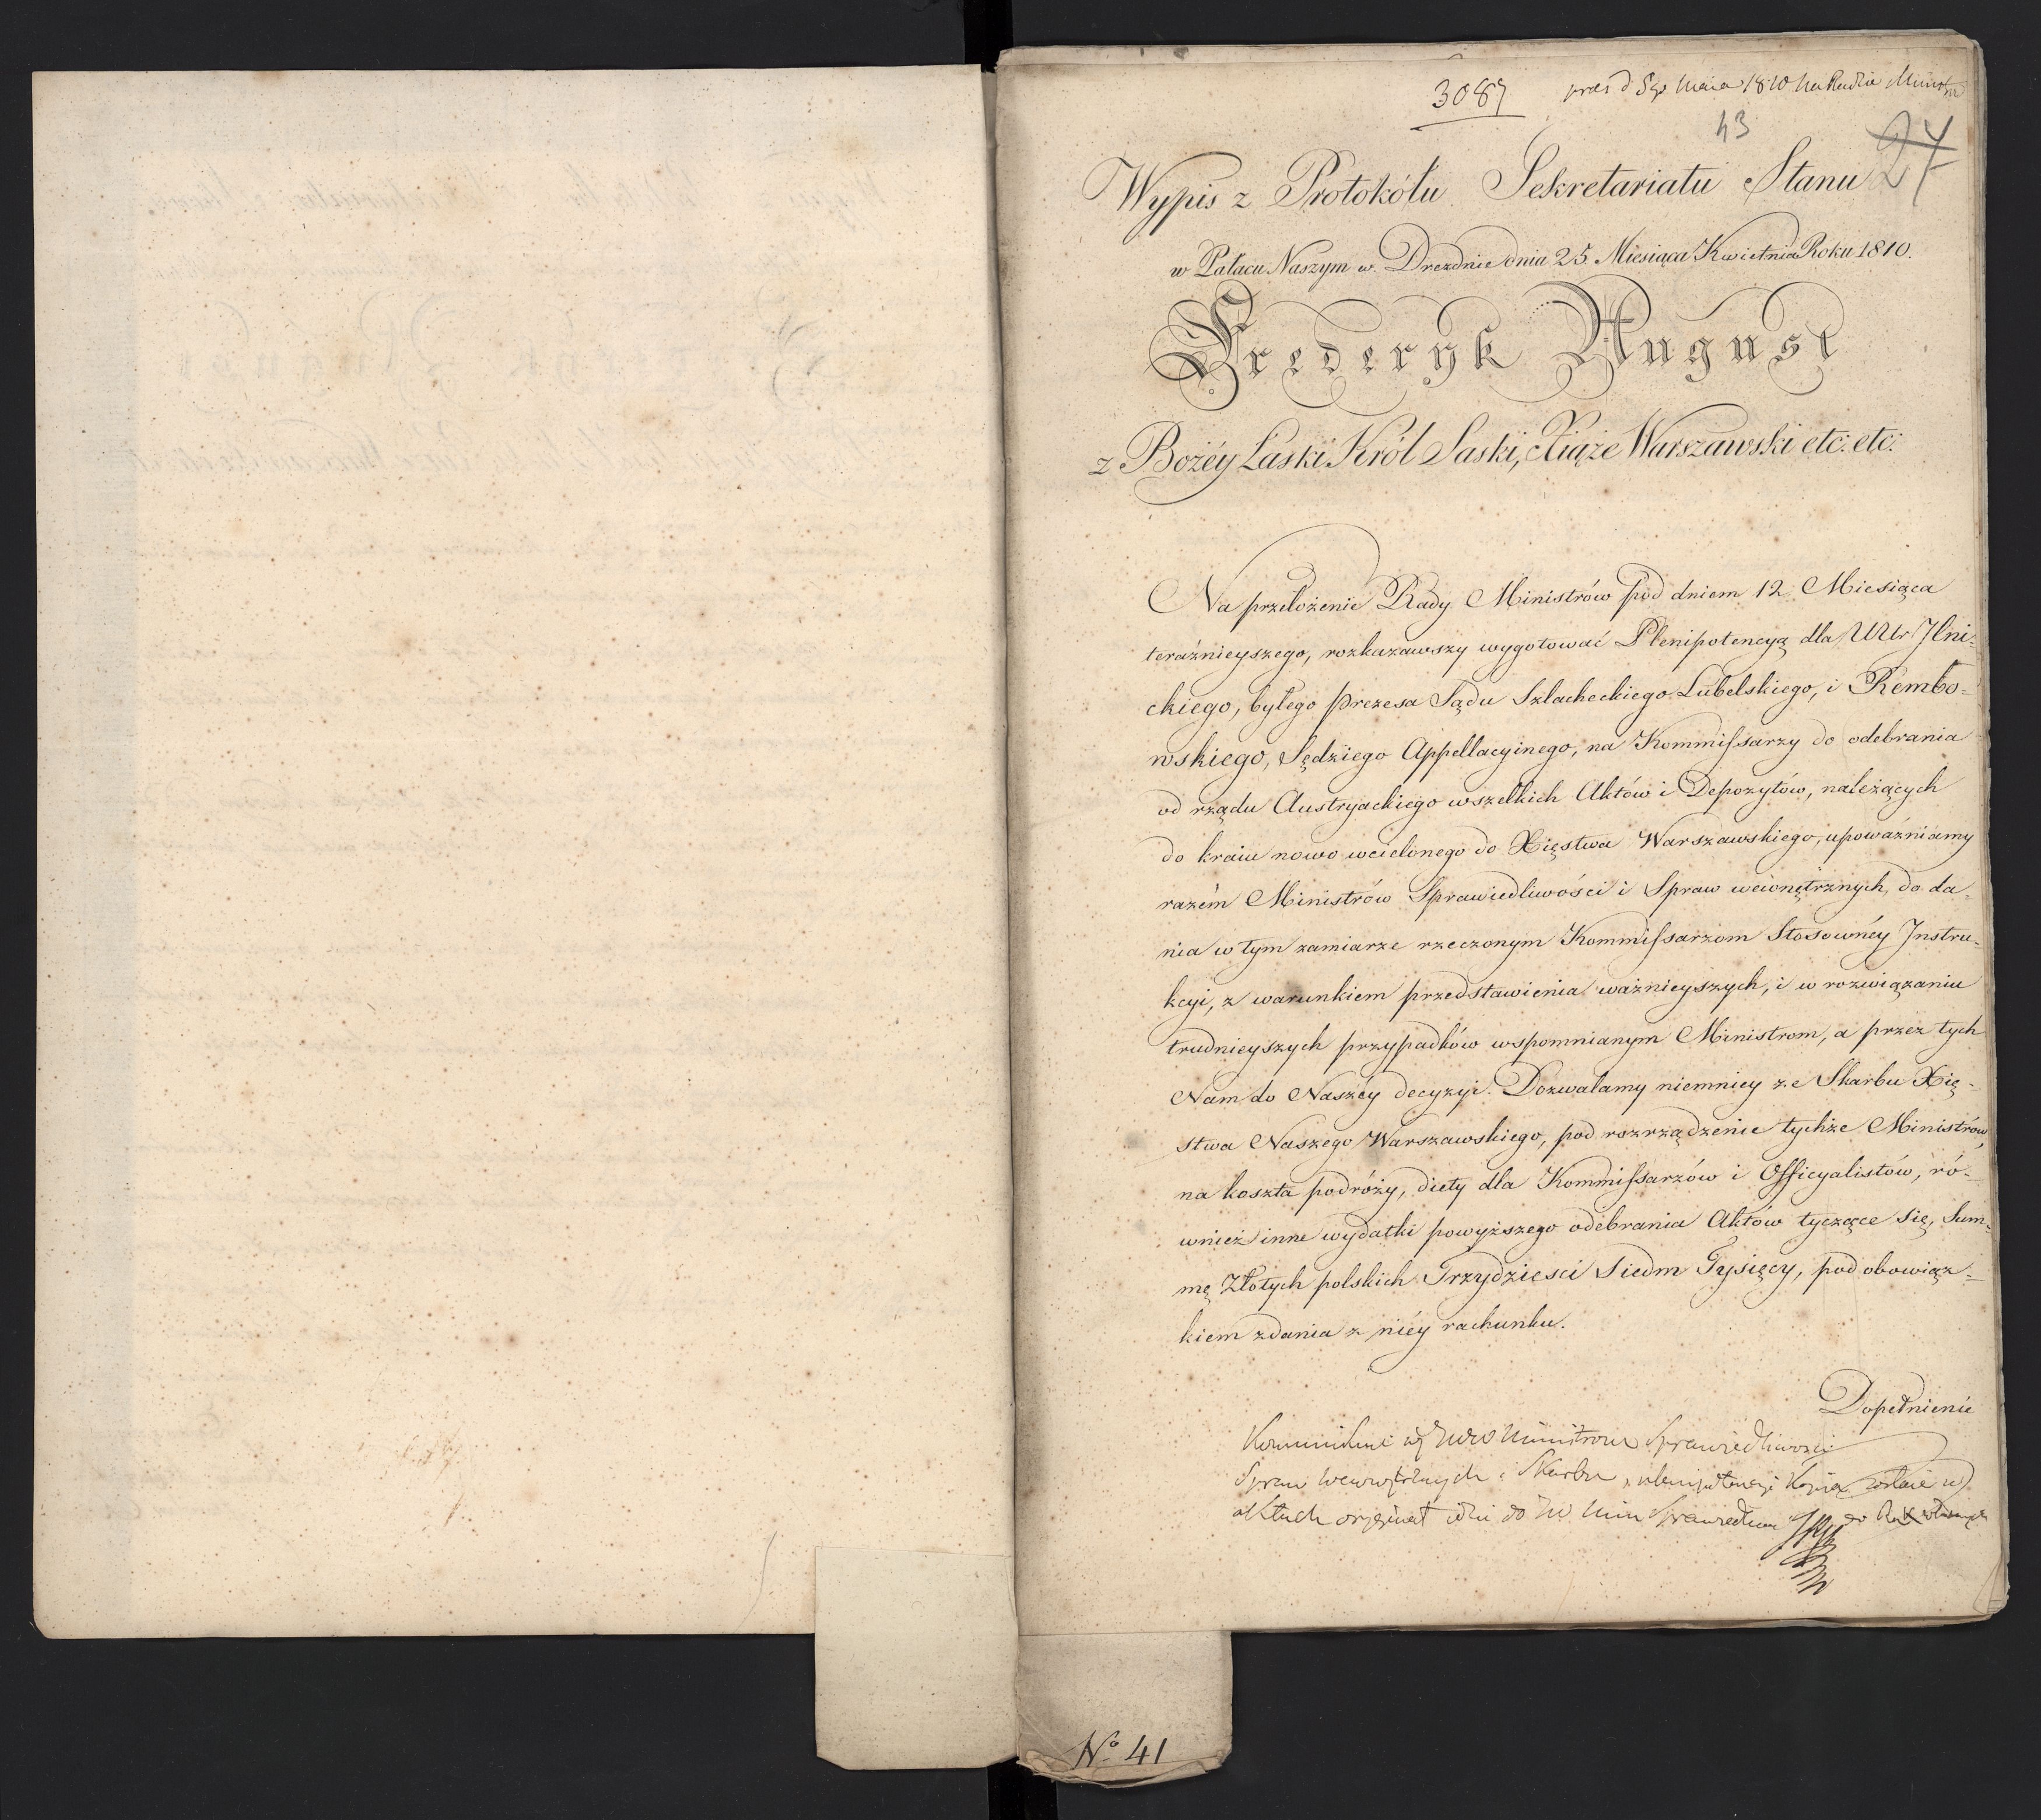 3087
praes d 5go Maia 1810 na Radzie Ministr
43
27
Wypis z Protokółu Sekretariatu Stanu
w Pałacu Naszym w Dreznie dnia 25. Miesiąca Kwietnia Roku 1810.
Frederyk August
z Bożéy Łaski Król Saski, Xiąże Warszawski etc: etc:
Na przełożenie Rady Ministrów pod dniem 12 Miesiąca
teraźnieyszego, rozkazawszy wygotować Plenipotencyą dla UUr Ilni-
ckiego, byłego Prezesa Sądu Szlacheckiego Lubelskiego, i Rembo-
wskiego, Sędziego Appellacyinego, na Kommissarzy do odebrania
od rządu Austryackiego wszelkich Aktów i Depozytów, należących
do kraiu nowo wcielonego do Xięstwa Warszawskiego, upoważniamy
razém Ministrów Sprawiedliwości i Spraw wewnętrznych, do da-
nia w tym zamiarze rzeczonym Kommissarzom Stosownéy Instru-
kcyi, z warunkiem przedstawienia ważnieyszych, i w rozwiązaniu
trudnieyszych przypadków wspomnianym Ministrom, a przez tych
Nam do Naszéy decyzyi. Dozwalamy niemniey ze Skarbu Xię-
stwa Naszego Warszawskiego, pod rozrządzenie tychże Ministrów,
na koszta podróży, diety dla Kommissarzów i Officyalistów, ró-
wnież inne wydatki powyższego odebrania Aktów tyczące się, Sum-
mę Złotych polskich Trzydziesci Siedm Tysięcy, pod obowiąz-
kiem zdania z niéy rachunku.
Dopełnienie
Ministrom Sprawiedliwości
Spraw wewnętrznych i Skarbu, plenipotencyi kopia w
aktach orginał do Min Sprawiedliw
No 41